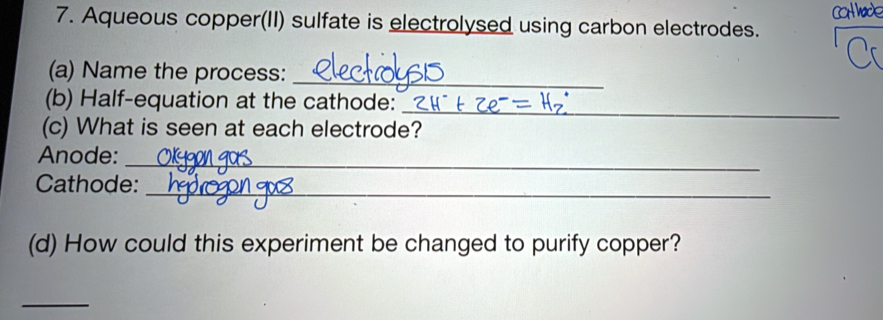 7. Aqueous copper(II) sulfate is electrolysed using carbon electrodes.
cathode
(a) Name the process: electrolysis
(b) Half-equation at the cathode: 2H⁻ + 2e⁻ = H₂
(c) What is seen at each electrode?
Anode: oxygen gas
Cathode: hydrogen gas
(d) How could this experiment be changed to purify copper?